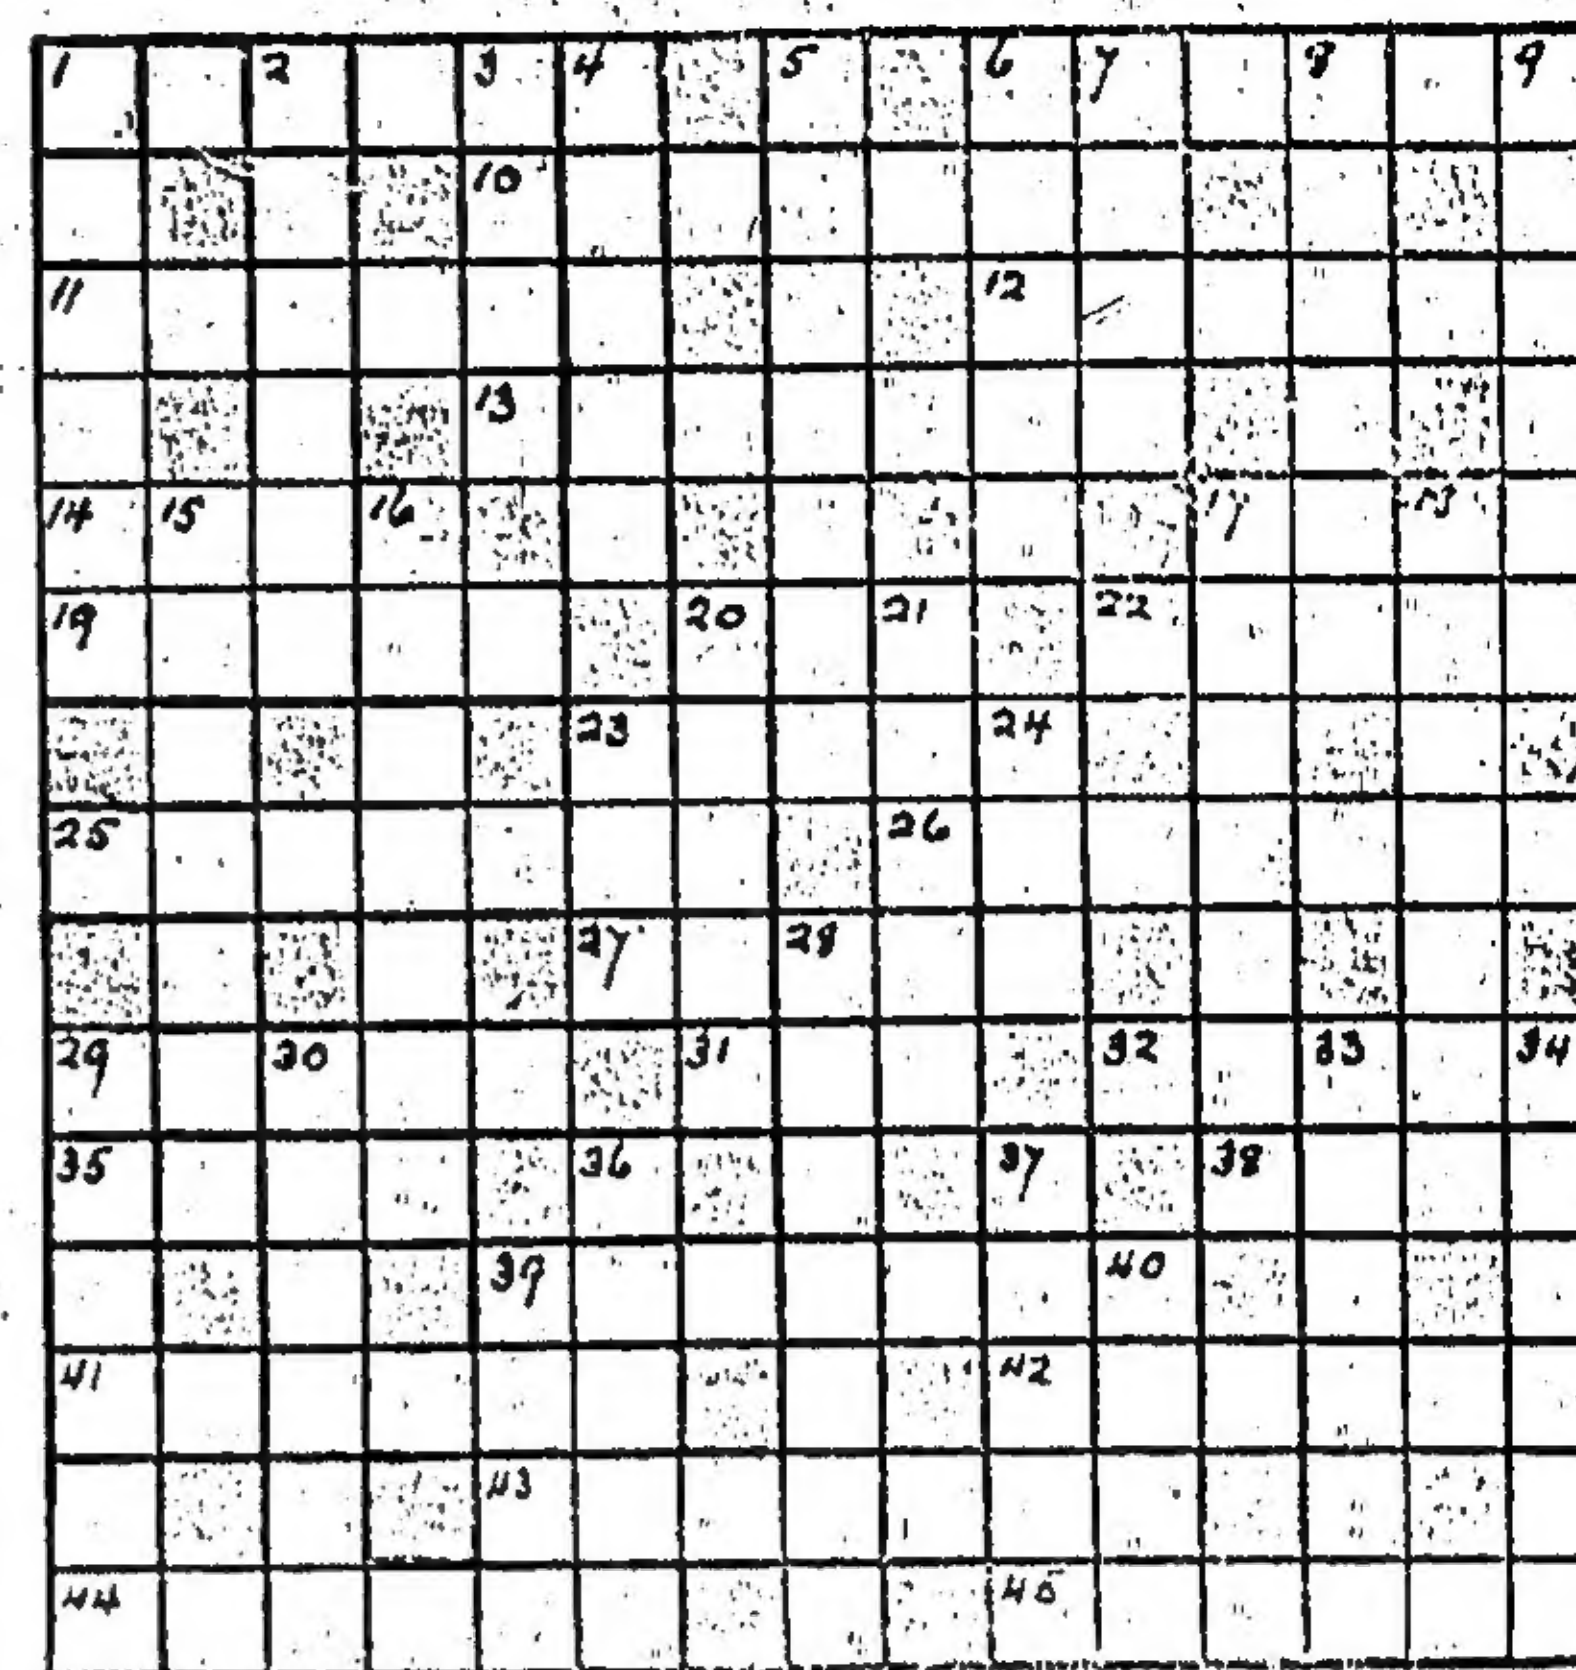 1 2 3 4 5 6 7 8 9
10
11 12
13
14 15 16 17 18
19 20 21 22
23 24
25 26
27 28
29 30 31 32 33 34
35 36 37 38
39 40
41 42
43
44 45